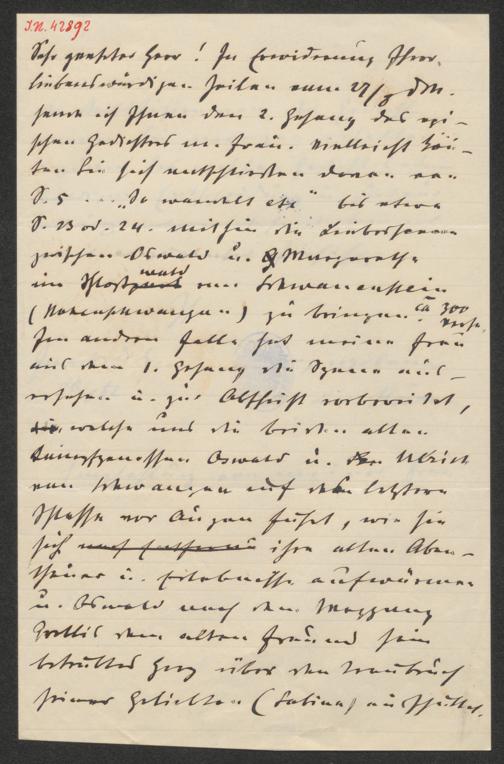 J.N. 42892
Sehr geehrter Herr! In Erwiderung Ihrer
liebenswürdigen Zeilen vom 27/X d. M.
sende ich Ihnen den 2. Gesang des epi-
schen Gedichtes m. Frau. Vielleicht kön-
ten Sie sich entschließen davon von
S. 5 ... „So wandelt etc“ bis etwa
S. 23 od. 24. mithin die Liebesscene
zwischen Oswald u. Margarethe
im Schloßwald von Schwanenstein
(Hohenschwangau) zu bringen. ca 300
Verse.
Im andern Falle hat meine Frau
aus dem 1. Gesang die Scene aus-
ersehen u. zur Abschrift vorbereitet,
welche uns die beiden alten
Kampfgenossen Oswald u. Ulrich
von Schwangau auf des letztern
Schlosse vor Augen führt, wie sie
sich ihre alten Aben-
theuer u. Erlebnisse aufwärmen
u. Oswald nach dem Weggang
dem alten Freund sein
betrübtes Herz über den Treubruch
seiner Geliebten (Sabina) ausschüttet.